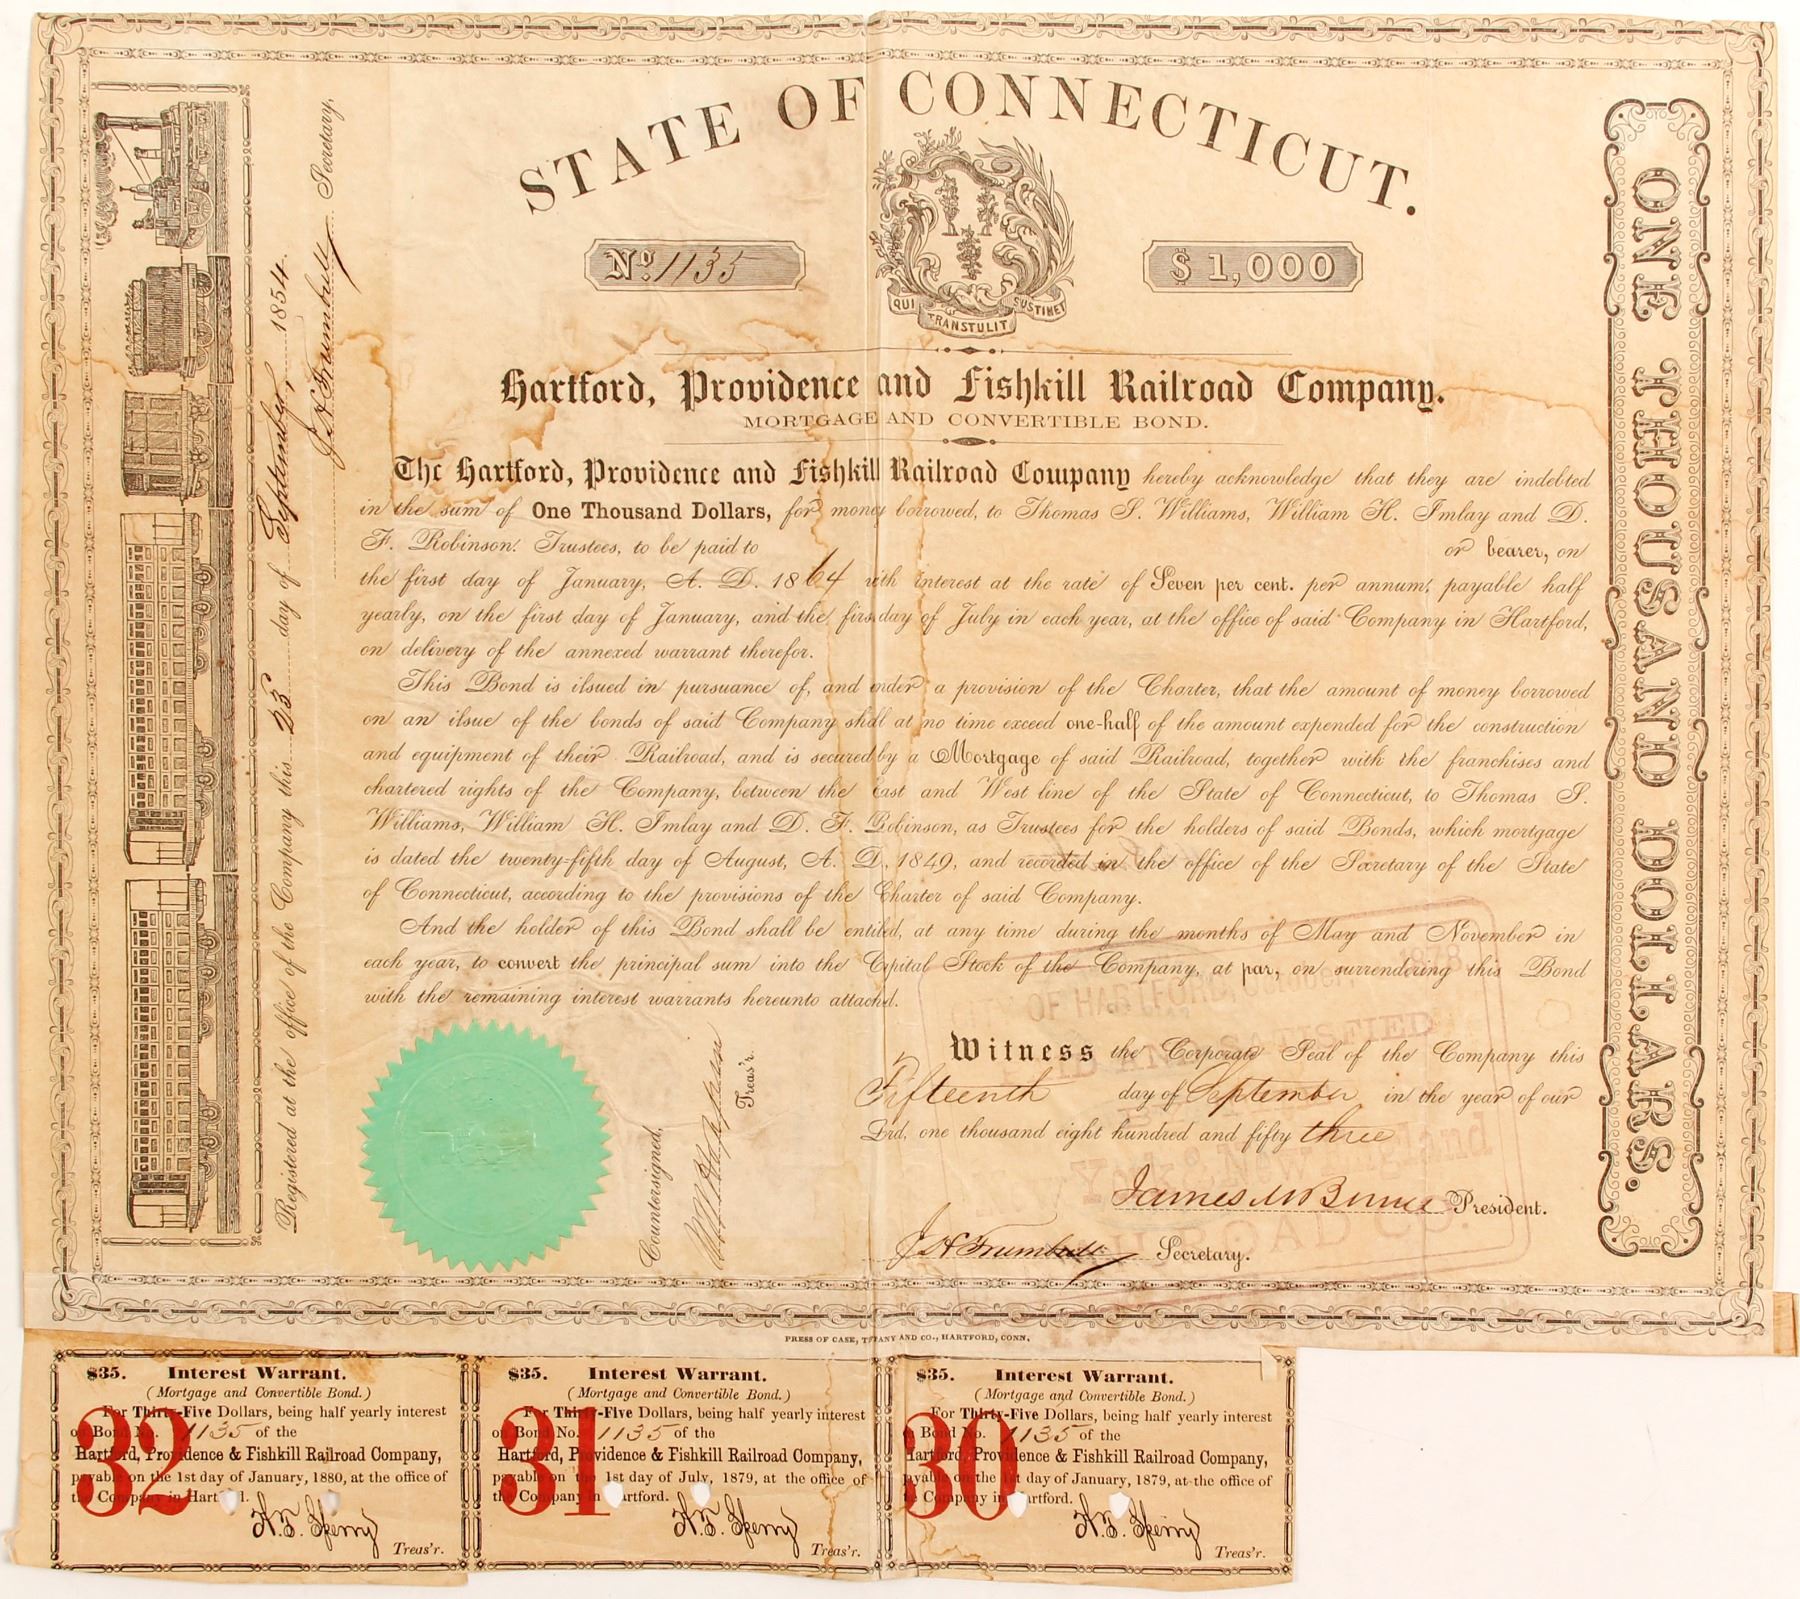 STATE OF CONNECTICUT.
No. 1135
$1,000
QUI TRANSTULIT SUSTINET
Hartford, Providence and Fishkill Railroad Company.
MORTGAGE AND CONVERTIBLE BOND.
The Hartford, Providence and Fishkill Railroad Company hereby acknowledge that they are indebted
in the sum of One Thousand Dollars, for money borrowed, to Thomas S. Williams, William H. Imlay and D.
F. Robinson. Trustees, to be paid to or bearer, on
the first day of January, A. D. 1864 with interest at the rate of Seven per cent. per annum, payable half
yearly, on the first day of January, and the firs day of July in each year, at the office of said Company in Hartford,
on delivery of the annexed warrant therefor.
This Bond is issued in pursuance of, and under a provision of the Charter, that the amount of money borrowed
on an issue of the bonds of said Company shall at no time exceed one-half of the amount expended for the construction
and equipment of their Railroad, and is secured by a Mortgage of said Railroad, together with the franchises and
chartered rights of the Company, between the East and West line of the State of Connecticut, to Thomas S.
Williams, William H. Imlay and D. F. Robinson, as Trustees for the holders of said Bonds, which mortgage
is dated the twenty-fifth day of August, A. D. 1849, and recorded in the office of the Secretary of the State
of Connecticut, according to the provisions of the Charter of said Company.
And the holder of this Bond shall be entitled, at any time during the months of May and November in
each year, to convert the principal sum into the Capital Stock of the Company, at par, on surrendering this Bond
with the remaining interest warrants hereunto attached.
Witness the Corporate Seal of the Company this
Fifteenth day of September in the year of our
Lord, one thousand eight hundred and fifty three
President.
J H Trumbull Secretary.
Countersigned,
Treas'r.
Registered at the office of the Company this 23d day of September, 1854.
J H Trumbull Secretary.
ONE THOUSAND DOLLARS.
PRESS OF CASE, TIFFANY AND CO., HARTFORD, CONN.
$35. Interest Warrant.
(Mortgage and Convertible Bond.)
For Thirty-Five Dollars, being half yearly interest
on Bond No. 1135 of the
Hartford, Providence & Fishkill Railroad Company,
payable on the 1st day of January, 1880, at the office of
the Company in Hartford.
32
Treas'r.
$35. Interest Warrant.
(Mortgage and Convertible Bond.)
For Thirty-Five Dollars, being half yearly interest
on Bond No. 1135 of the
Hartford, Providence & Fishkill Railroad Company,
payable on the 1st day of July, 1879, at the office of
the Company in Hartford.
31
Treas'r.
$35. Interest Warrant.
(Mortgage and Convertible Bond.)
For Thirty-Five Dollars, being half yearly interest
on Bond No. 1135 of the
Hartford, Providence & Fishkill Railroad Company,
payable on the 1st day of January, 1879, at the office of
the Company in Hartford.
30
Treas'r.